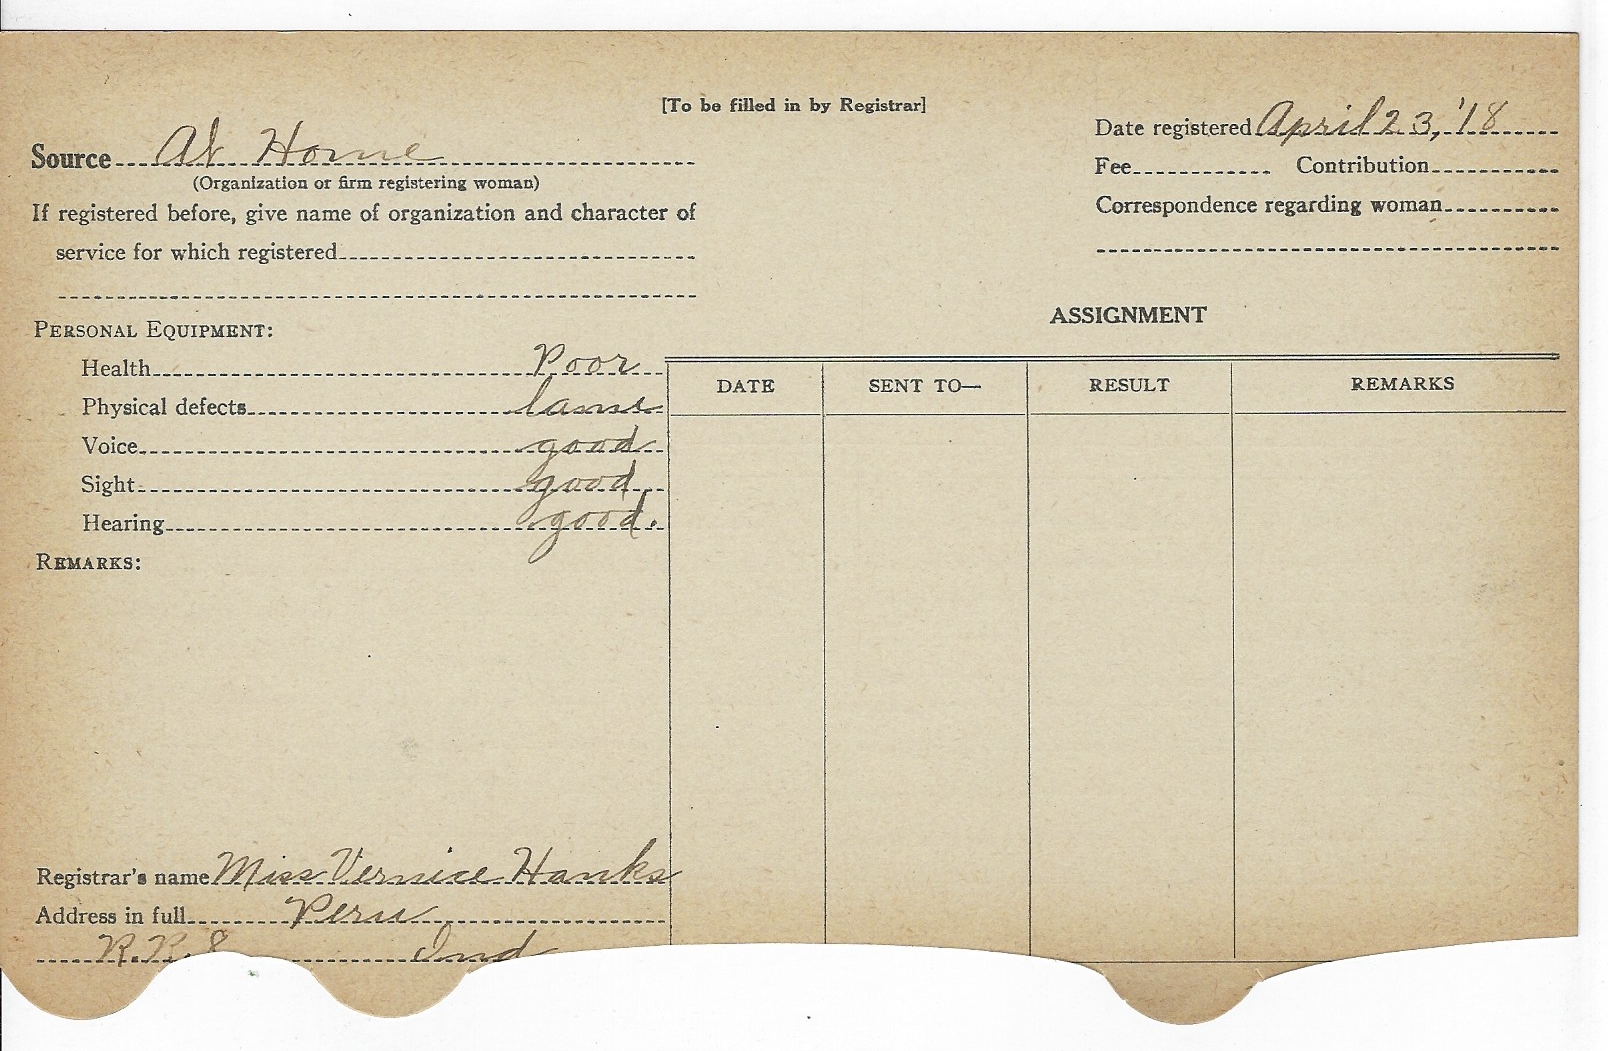 [To be filled in by Registrar]
Date registered April 23, '18
Source At Home
Fee Contribution
(Organization or firm registering woman)
Correspondence regarding woman
If registered before, give name of organization and character of
service for which registered
ASSIGNMENT
PERSONAL EQUIPMENT:
Health Poor
DATE SENT TO— RESULT REMARKS
Physical defects lame
Voice good
Sight good
Hearing good.
REMARKS:
Registrar's name Miss Vernice Hanks
Address in full Peru
R.R. 8 Ind